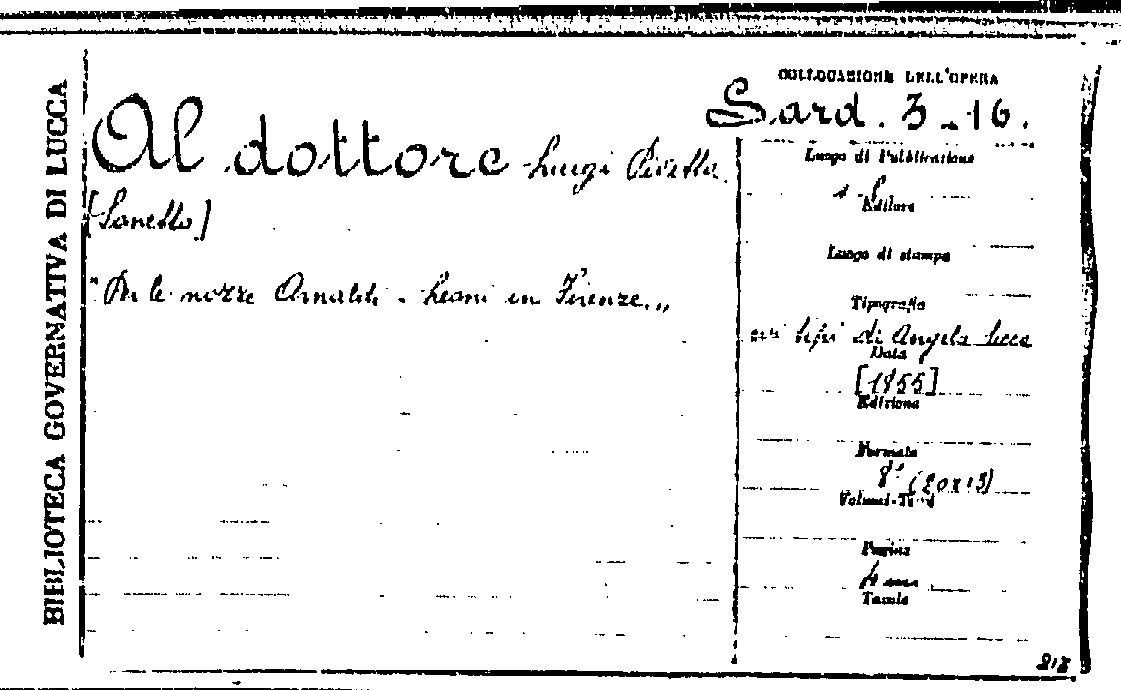 BIBLIOTECA GOVERNATIVA DI LUCCA
COLLOCAZIONE DELL'OPERA
Sard. 3-16.
Al dottore Luigi
[Sonetto]
"Per le nozze Arnaldi - Leoni in Firenze.„
Luogo di Pubblicazione
Editore
Luogo di stampa
Tipografia
tipi di Angelo Sicca
Data
[1855]
Edizione
Formato
8° (20x13)
Volumi-Tomi
Pagine
4
Tavole